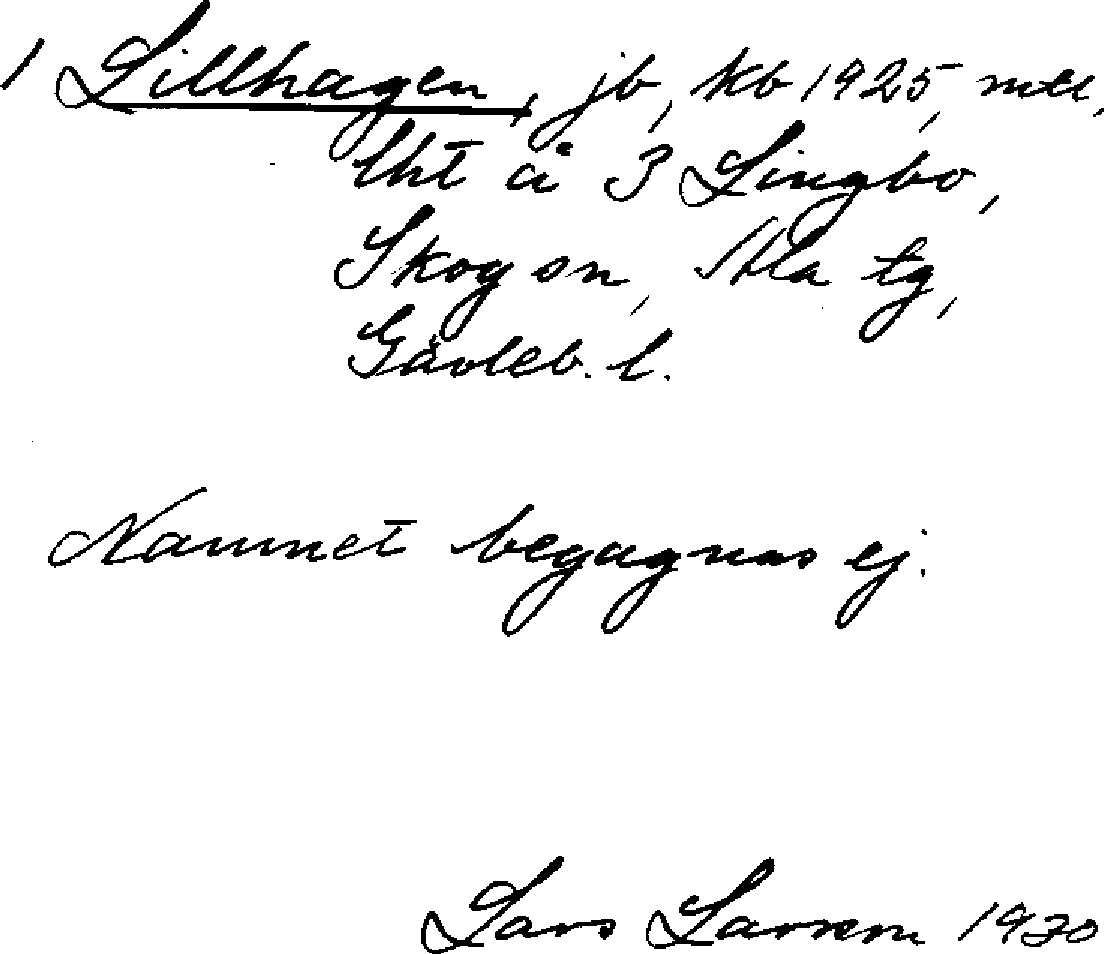 1 Lillhagen, jb, kb 1925, mtl,
lht å 3 Lingbo,
Skog sn, Ala tg,
Gävleb. l.
Namnet begagnas ej.
Lars Larsson 1930